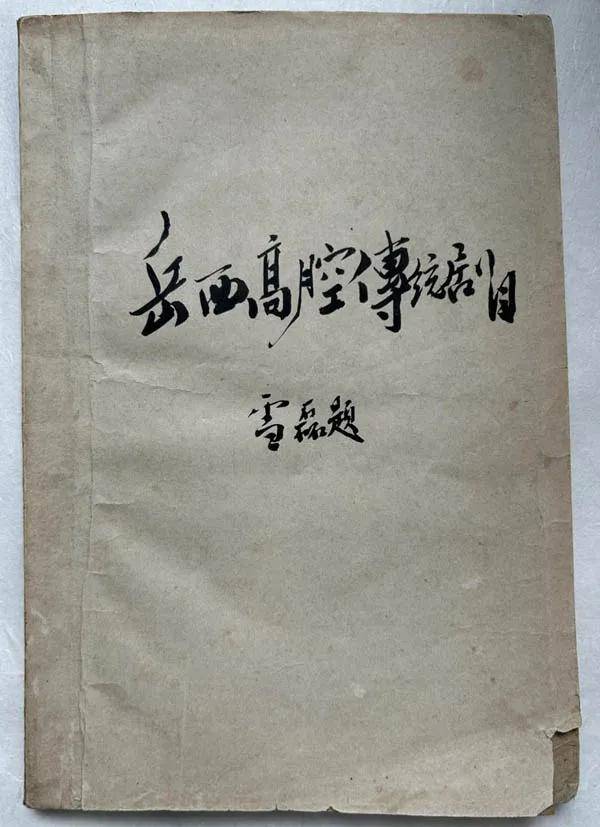 岳西高腔傳統剧目
雪磊題